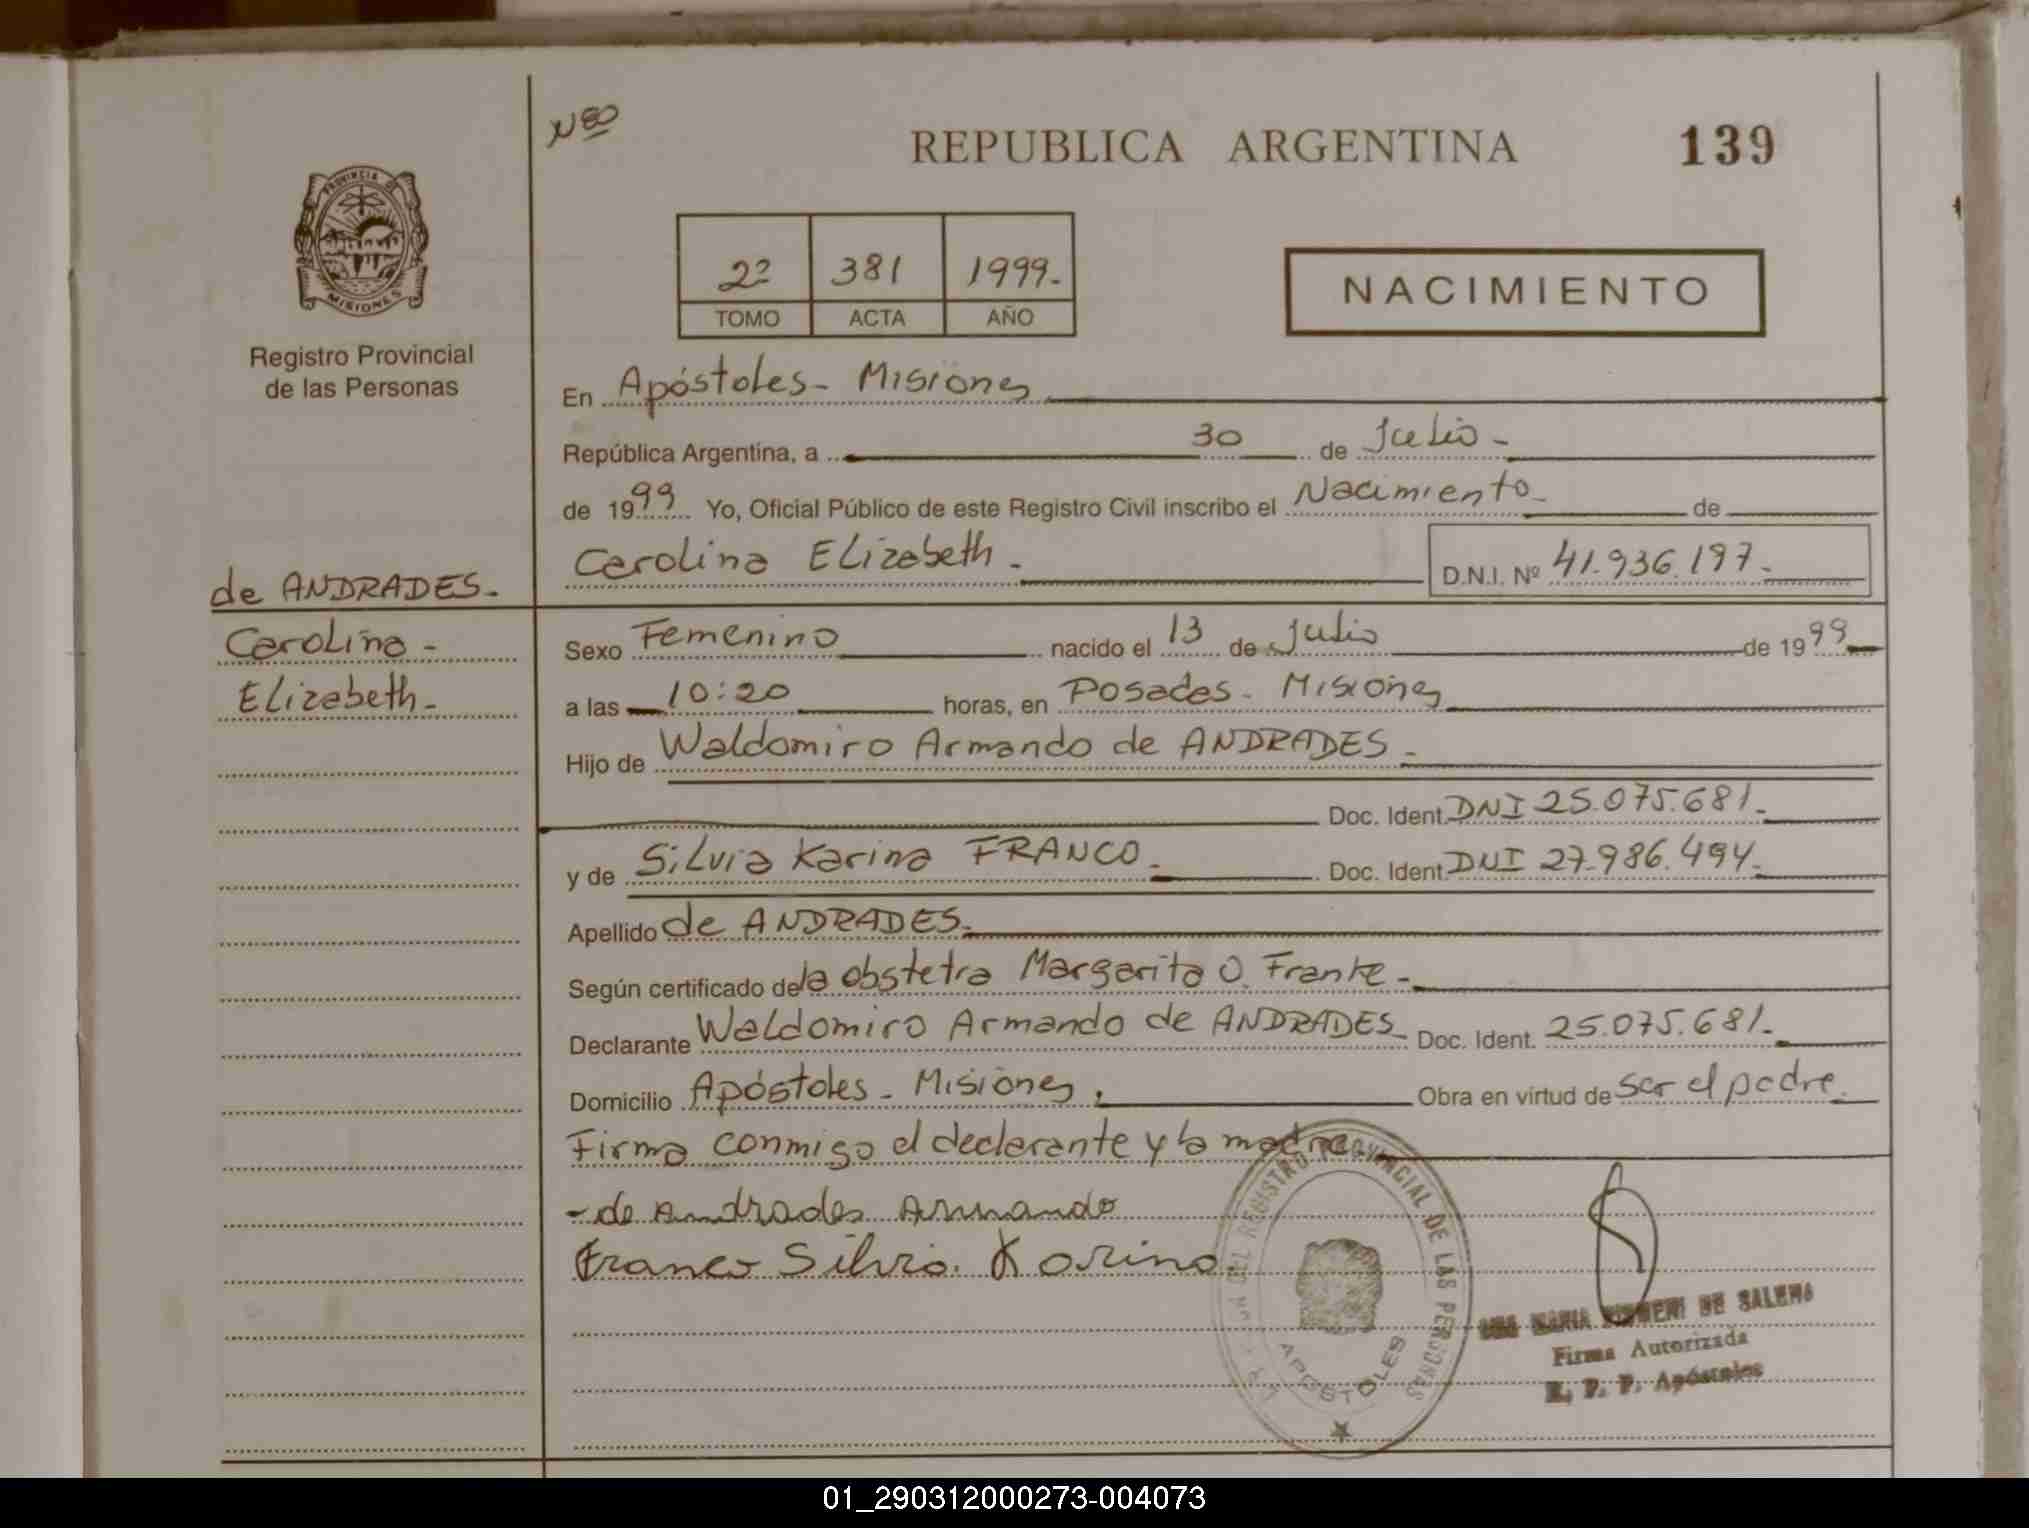 Neo
REPUBLICA ARGENTINA 139
PROVINCIA DE
MISIONES
Registro Provincial
de las Personas
2º 381 1999-
TOMO ACTA AÑO
NACIMIENTO
En Apóstoles - Misiones
República Argentina, a 30 de Julio -
de 1999 Yo, Oficial Público de este Registro Civil inscribo el Nacimiento - de
Carolina Elizabeth - D.N.I. Nº 41.936.197.-
de ANDRADES -
Carolina -
Elizabeth -
Sexo Femenino nacido el 13 de Julio de 1999
a las 10:20 horas, en Posadas - Misiones
Hijo de Waldomiro Armando de ANDRADES -
Doc. Ident. DNI 25.075.681.-
y de Silvia Karina FRANCO - Doc. Ident. DNI 27.986.494.-
Apellido de ANDRADES -
Según certificado de la obstetra Margarita O. Franke -
Declarante Waldomiro Armando de ANDRADES Doc. Ident. 25.075.681.-
Domicilio Apóstoles - Misiones. Obra en virtud de ser el padre.
Firma conmigo el declarante y la madre
- de Andrades Armando
Franco Silvia Karina
DEL REGISTRO PROVINCIAL DE LAS PERSONAS
APOSTOLES
MARIA DE SALEMA
Firma Autorizada
R. P. P. Apóstoles
01_290312000273-004073